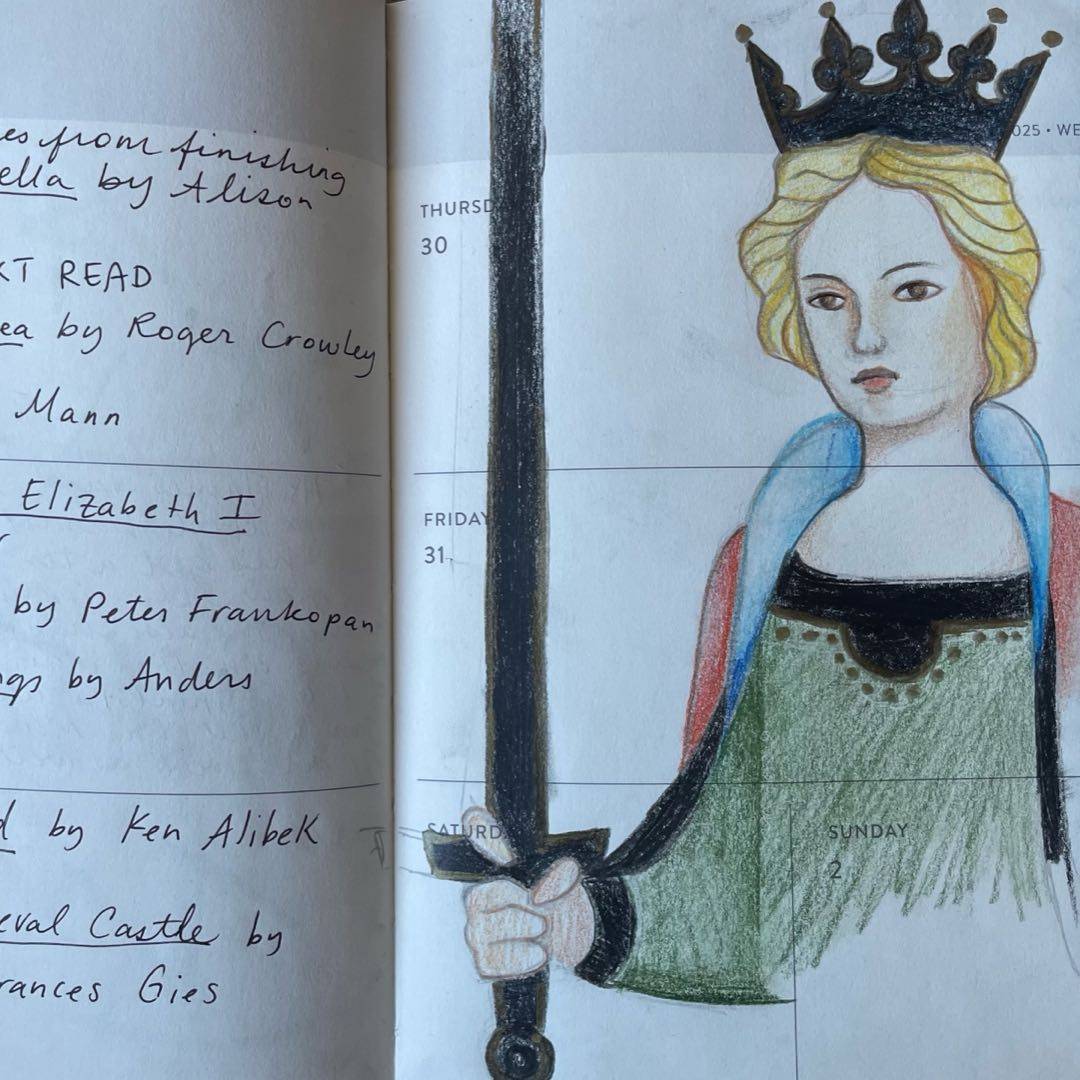 es from finishing
ella by Alison
KT READ
ea by Roger Crowley
Mann
Elizabeth I
by Peter Frankopan
ngs by Anders
d by Ken Alibek
eval Castle by
rances Gies
025 • WE
THURSD
30
FRIDAY
31
SATURD
SUNDAY
2